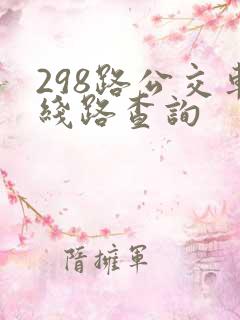 298路公交車
綫路查詢
隋擁軍